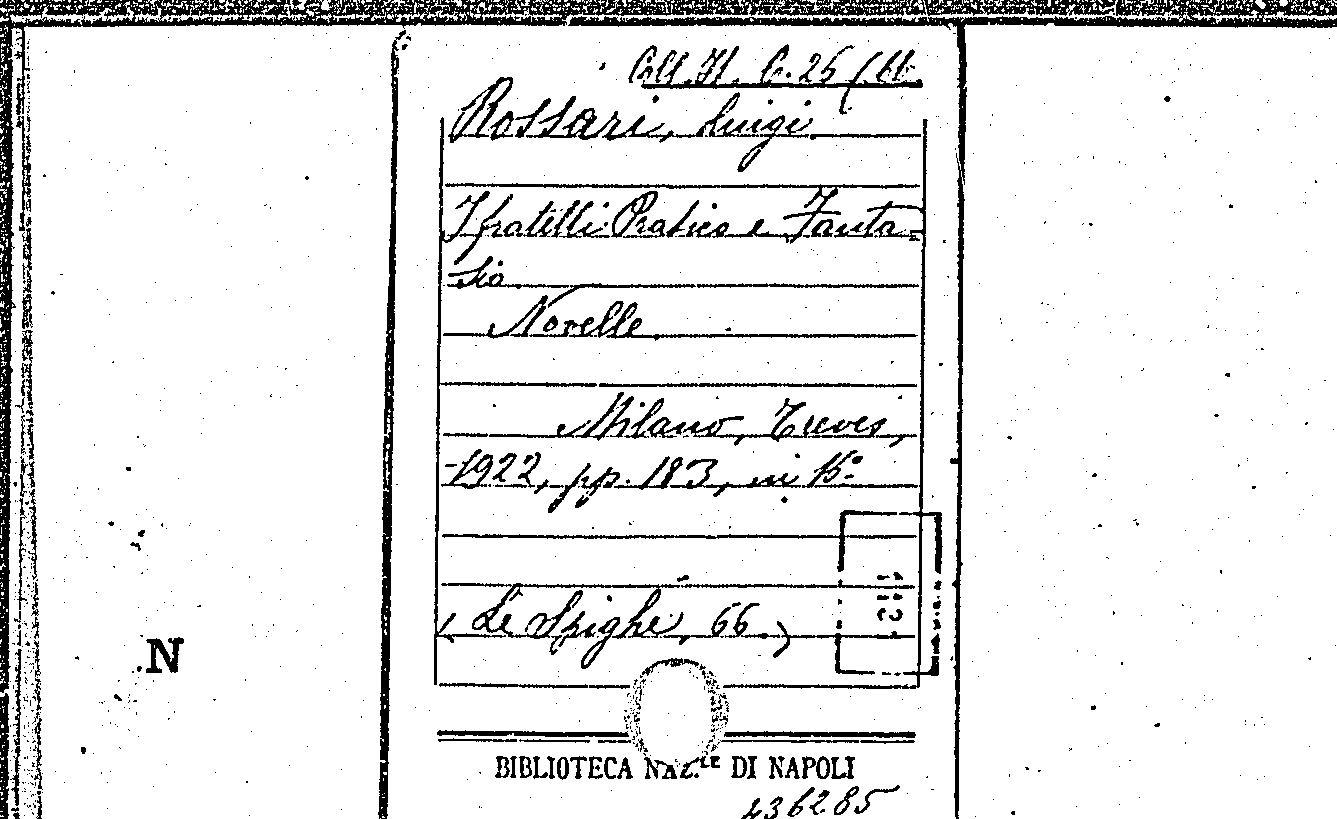 Coll. It. C. 25 (66.
Rossari, Luigi.
I fratelli Pratico e Fanta-
sia.
Novelle.
Milano, Treves,
1922, pp. 183, in 16°.
(Le Spighe, 66.)
N
BIBLIOTECA NAZ.LE DI NAPOLI
436285